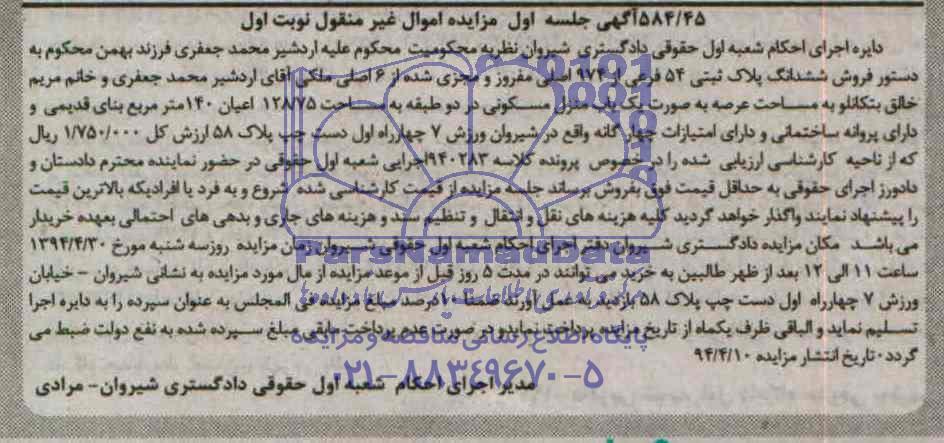 ۵۸۴/۴۵آگهی جلسه اول مزایده اموال غیر منقول نوبت اول
دایره اجرای احکام شعبه اول حقوقی دادگستری شیروان نظربه محکومیت محکوم علیه اردشیر محمد جعفری فرزند بهمن محکوم به
دستور فروش ششدانگ پلاک ثبتی ۵۴ فرعی از ۹۷۴ اصلی مفروز و مجزی شده از ۶ اصلی ملکی آقای اردشیر محمد جعفری و خانم مریم
خالق بتکانلو به مساحت عرصه به صورت یک باب منزل مسکونی در دو طبقه به مساحت ۱۲۸/۷۵ اعیان ۱۴۰متر مربع بنای قدیمی و
دارای پروانه ساختمانی و دارای امتیازات چهار گانه واقع در شیروان ورزش ۷ چهارراه اول دست چپ پلاک ۵۸ ارزش کل ۱/۷۵۰/۰۰۰ ریال
که از ناحیه کارشناسی ارزیابی شده را در خصوص پرونده کلاسه ۹۴۰۲۸۳اجرایی شعبه اول حقوقی در حضور نماینده محترم دادستان و
دادورز اجرای حقوقی به حداقل قیمت فوق بفروش برساند جلسه مزایده از قیمت کارشناسی شده شروع و به فرد یا افرادیکه بالاترین قیمت
را پیشنهاد نمایند واگذار خواهد گردید کلیه هزینه های نقل و انتقال و تنظیم سند و هزینه های جاری و بدهی های احتمالی بعهده خریدار
می باشد مکان مزایده دادگستری شیروان دفتر اجرای احکام شعبه اول حقوقی شیروان زمان مزایده روزسه شنبه مورخ ۱۳۹۴/۴/۳۰
ساعت ۱۱ الی ۱۲ بعد از ظهر طالبین به خرید می توانند در مدت ۵ روز قبل از موعد مزایده از مال مورد مزایده به نشانی شیروان – خیابان
ورزش ۷ چهارراه اول دست چپ پلاک ۵۸ بازدید به عمل آورند ضمنا ۱۰درصد مبلغ مزایده فی المجلس به عنوان سپرده را به دایره اجرا
تسلیم نماید و الباقی ظرف یکماه از تاریخ مزایده پرداخت نماید و در صورت عدم پرداخت مابقی مبلغ سپرده شده به نفع دولت ضبط می
گردد۰تاریخ انتشار مزایده ۹۴/۴/۱۰
مدیر اجرای احکام شعبه اول حقوقی دادگستری شیروان- مرادی
ParsNamadData
پایگاه اطلاع رسانی مناقصه و مزایده
۰۲۱-۸۸۳۴۹۶۷۰-۵